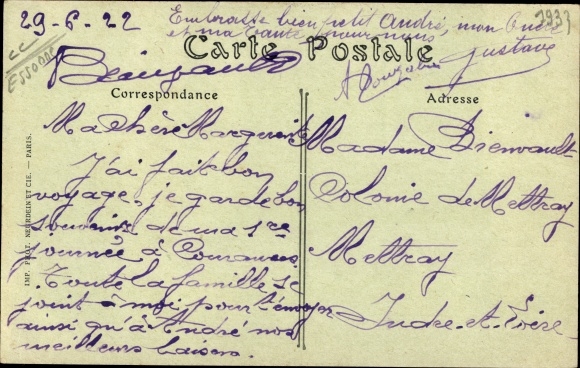 29-6-22
Embrasse bien petit André, mon Oncle
et ma tante pour nous
Gustave
7933
Carte Postale
Correspondance
Adresse
Ma chère Marguerite
J'ai fait bon
voyage, je garde bon
souvenir de ma 1re
journée à Courances.
Toute la famille se
joint à moi pour t'envoyer
ainsi qu'à André nos
meilleurs baisers.
Madame Bienvault
Colonie de Mettray
Mettray
Indre-et-Loire
IMP. PHOT. NEURDEIN ET CIE. — PARIS.